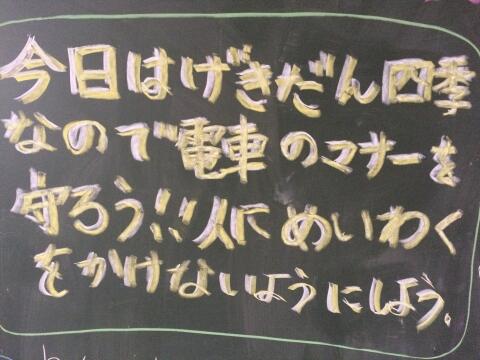 今日はげきだん四季
なので電車のマナーを
守ろう!!人にめいわく
をかけないようにしよう.